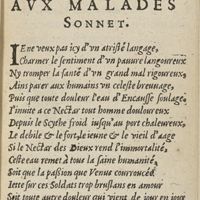 AVX MALADES
SONNET.
IE ne veux pas icy d'vn atristé langage,
Charmer le sentiment d'vn pauure langoureux
Ny tromper la santé d'vn grand mal rigoureux,
Ains parer aux humains vn celeste breuuage,
Puis que toute douleur l'eau d'Encausse soulage,
I'inuite a ce Nectar tout homme douloureux
Depuis le Scythe froid iusqu'au port chaleureux,
Le debile & le fort, le ieune & le vieil d'aage
Si le Nectar des Dieux rend l'immortalité,
Ceste eau remet à tous la saine humanité,
Soit que la paßion que Venus courroucée
Iette sur ces Soldats trop bruslans en amour
Soit toute autre douleur qui vient de iour en iour